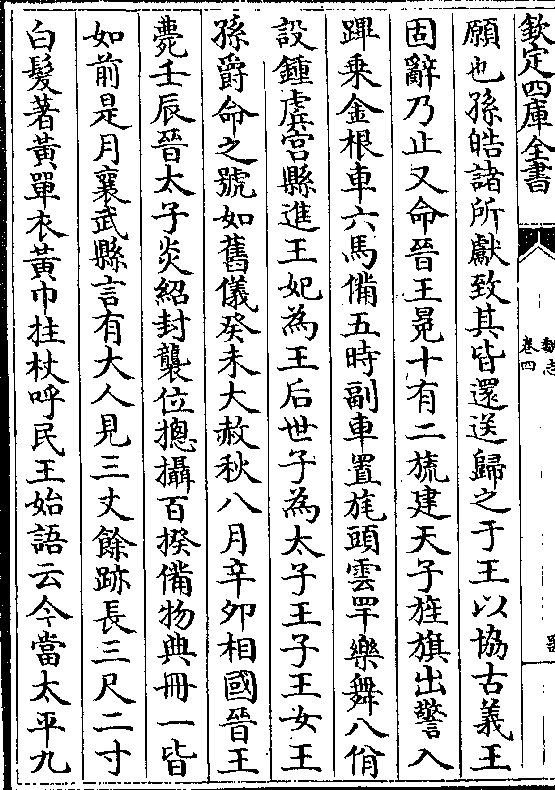 欽定四庫全書
魏志
卷四
願也孫皓諸所獻致其皆還送歸之于王以協古義王
固辭乃止又命晉王冕十有二旒建天子旌旗出警入
蹕乘金根車六馬備五時副車置旄頭雲罕樂舞八佾
設鍾虡宮縣進王妃為王后世子為太子王子王女王
孫爵命之號如舊儀癸未大赦秋八月辛卯相國晉王
薨壬辰晉太子炎紹封襲位摠攝百揆備物典冊一皆
如前是月襄武縣言有大人見三丈餘跡長三尺二寸
白髮著黃單衣黃巾拄杖呼民王始語云今當太平九